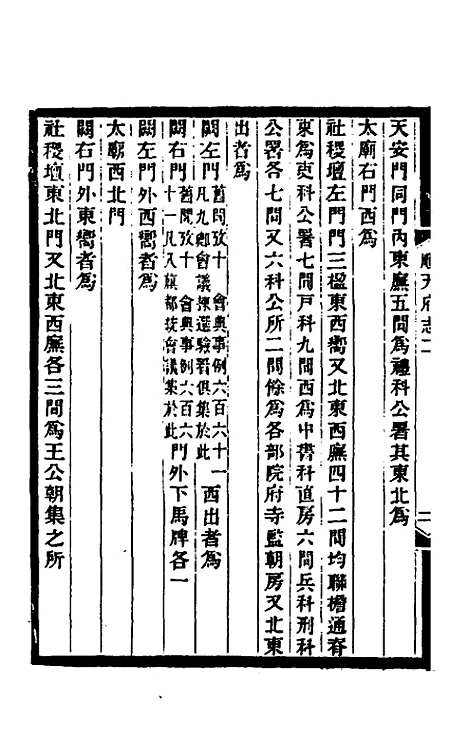 順天府志二
二
天安門同門內東廡五間爲禮科公署其東北爲
太廟右門西爲
社稷壇左門門三楹東西嚮又北東西廡四十二間均聯檐通脊
東爲吏科公署七間戸科九間西爲中書科直房六間兵科刑科
公署各七間又六科公所二間餘爲各部院府寺監朝房又北東
出者爲
闕左門舊聞攷十 會典事例六百六十一
凡九卿會議揀選驗看俱集於此西出者爲
闕右門舊聞攷十 會典事例六百六
十一凡八旗都統會議集於此門外下馬牌各一
闕左門外西嚮者爲
太廟西北門
闕右門外東嚮者爲
社稷壇東北門又北東西廡各三間爲王公朝集之所